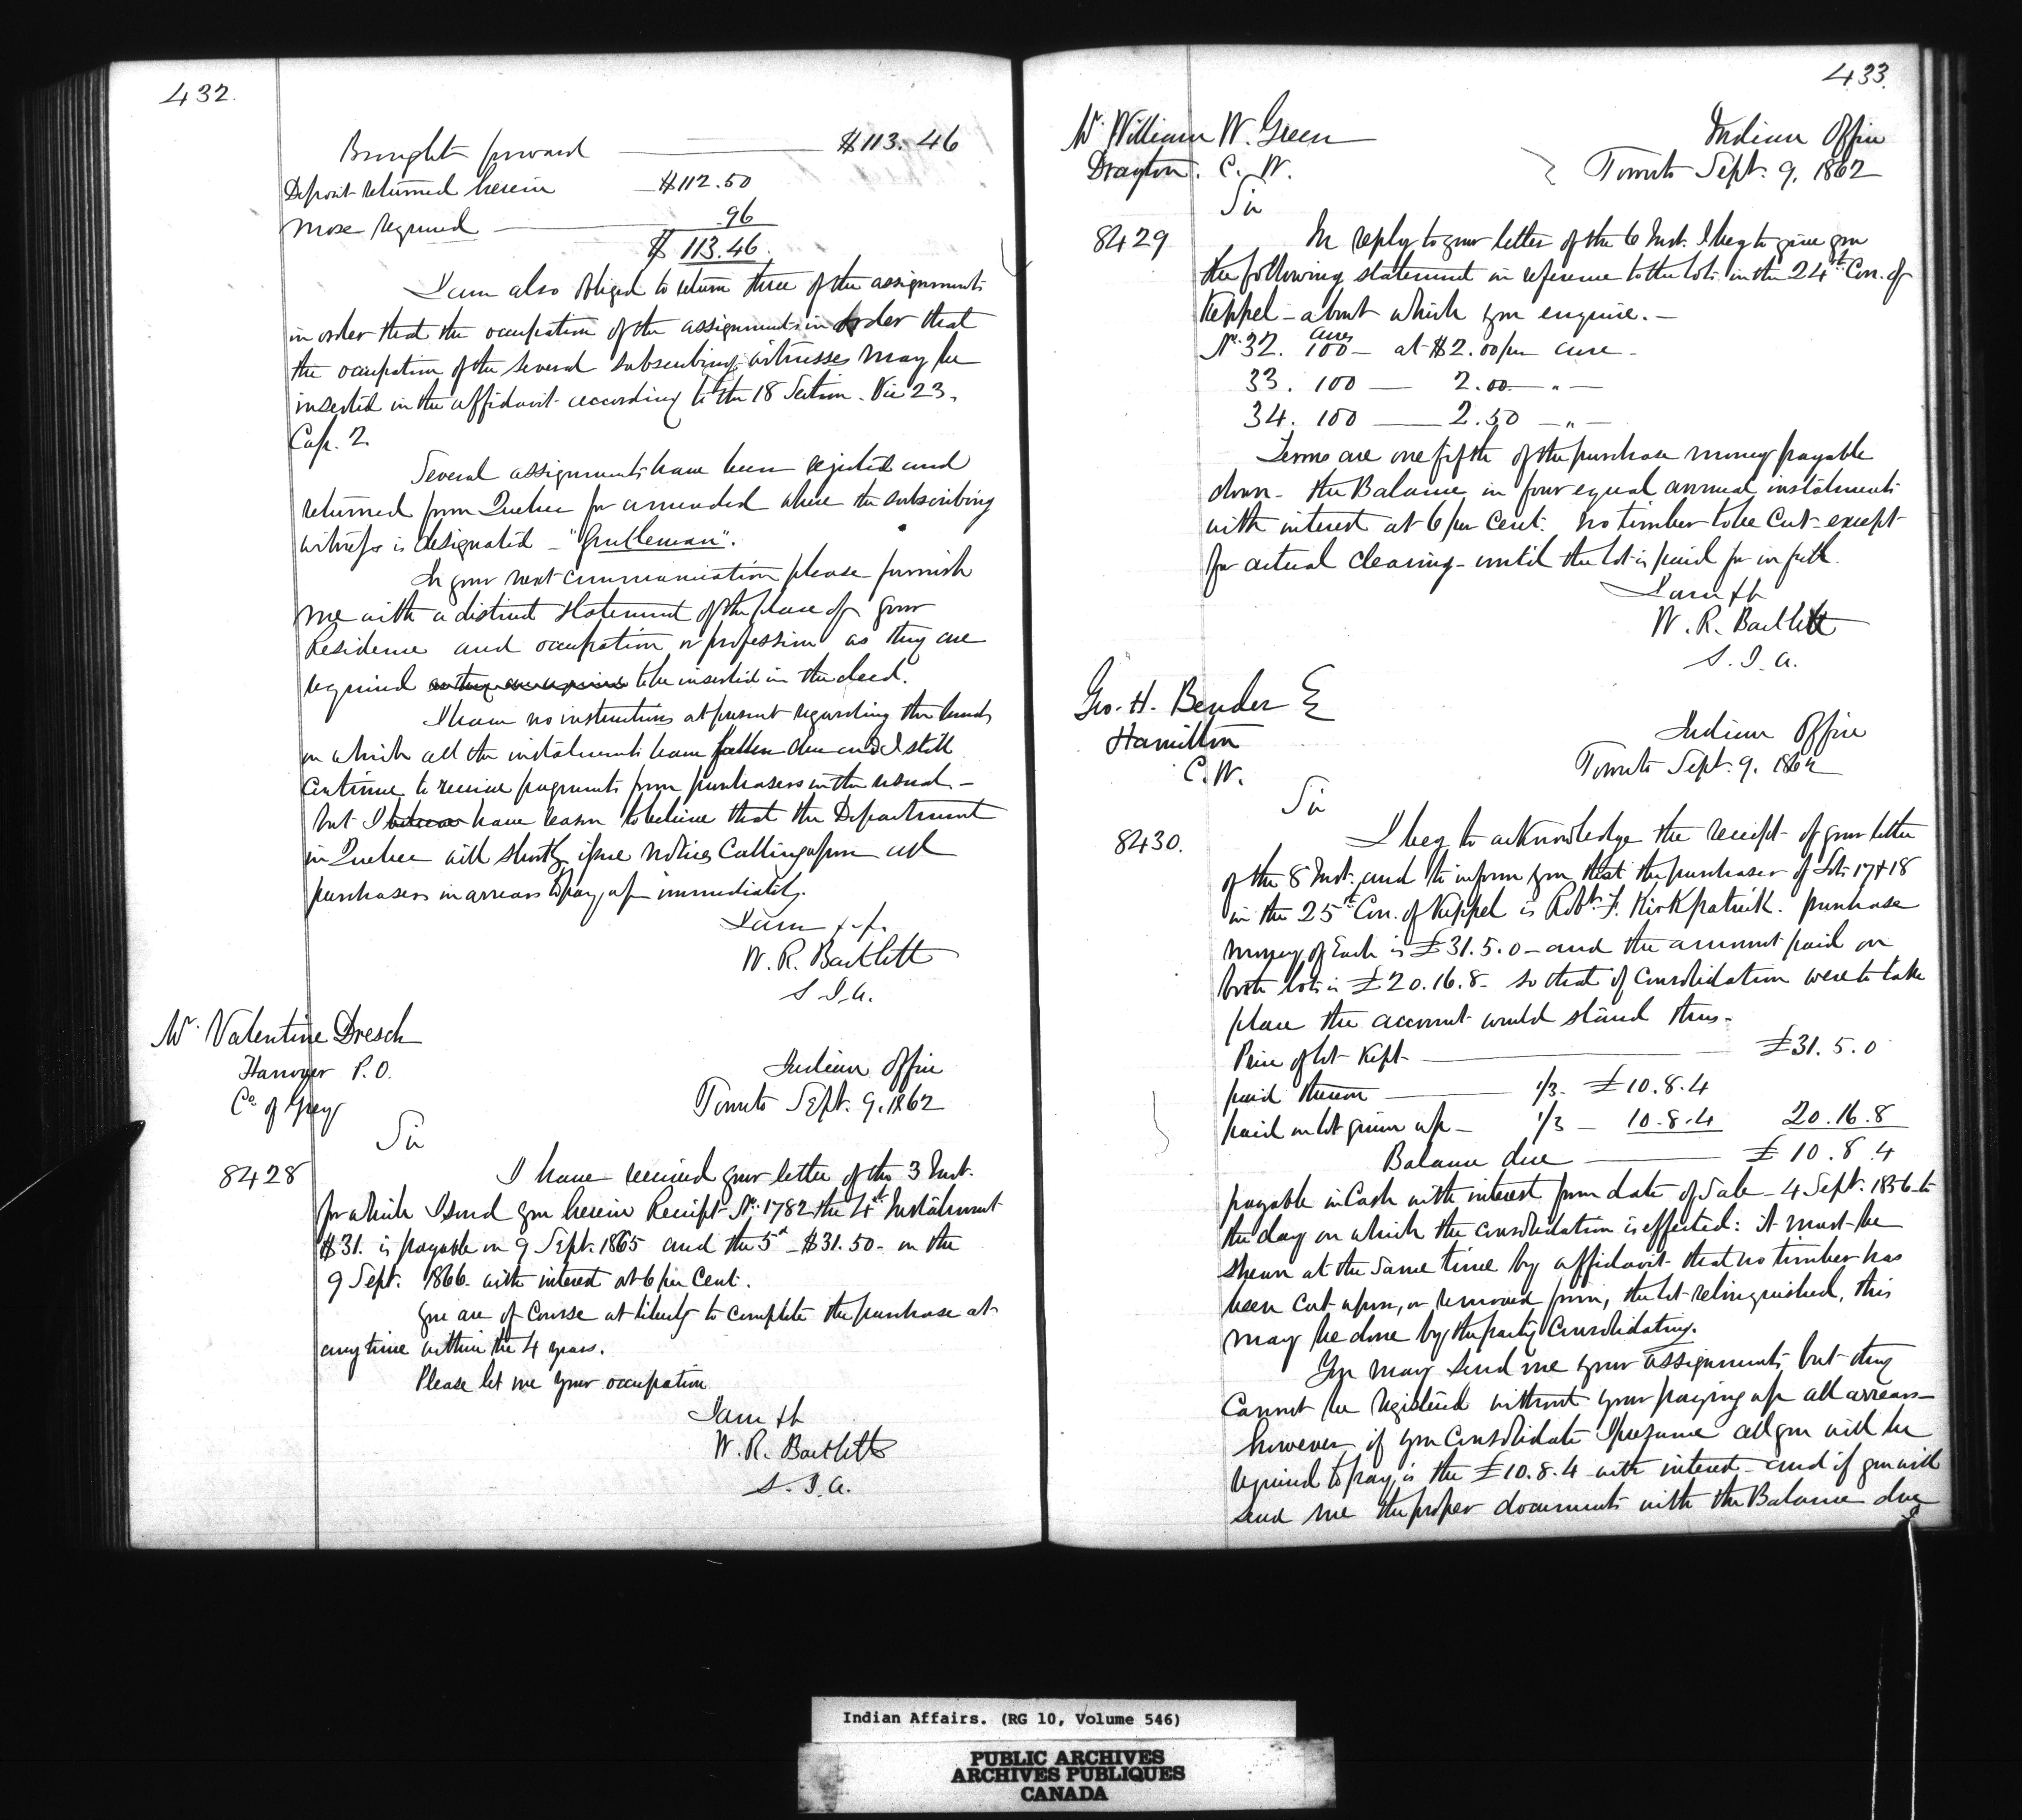 432.
Brought forward $113.46
Deposit returned herein $112.50
more required .96
$113.46
I am also obliged to return three of the assignments
in order that the occupation of the assignments in order that
the occupation of the several subscribing witnesses may be
inserted in the affidavit according to the 18 Section. Vic 23.
Cap. 2.
Several assignments have been rejected and
returned from Quebec for amended where the subscribing
witness is designated - "Gentleman".
In your next communication please furnish
me with a distinct statement of the place of your
Residence and occupation or profession as they are
required as they are required to be inserted in the deed.
I have no instructions at present regarding the lands
on which all the instalments have fallen due and I still
continue to receive payments from purchasers in the usual -
but I believe have reason to believe that the Department
in Quebec will shortly issue notices calling upon all
purchasers in arrears to pay up immediately.
I am &c.
W. R. Bartlett
S. I. A.
Mr. Valentine Dresch
Hanover P.O.
Co. of Grey
Indian Office
Toronto Sept. 9. 1862
Sir
8428
I have received your letter of the 3 Inst.
for which I send you herein Receipt No. 1782 the 4th Instalment
$31. is payable on 9 Sept. 1865 and the 5th $31.50 - on the
9 Sept. 1866 with interest at 6 per Cent.
You are of Course at liberty to complete the purchase at
any time within the 4 years.
Please let me your occupation
I am &c
W. R. Bartlett
S. I. A.
433.
Mr. William W. Green
Drayton. C. W.
Indian Office
Toronto Sept. 9. 1862
Sir
8429
In reply to your letter of the 6 Inst. I beg to give you
the following statement in reference to the lots in the 24th Con. of
Keppel - about which you enquire. -
No. 32. 100 acres - at $2.00 per acre -
33. 100 — 2.00 — " —
34. 100 — 2.50 — " —
Terms are one fifth of the purchase money payable
down - the Balance in four equal annual instalments
with interest at 6 per Cent. no timber to be Cut except
for actual clearing - until the lot is paid for in full.
I am &c
W. R. Bartlett
S. I. A.
Geo. H. Bender E
Hamilton
C. W.
Indian Office
Toronto Sept. 9. 1862
Sir
8430.
I beg to acknowledge the receipt of your letter
of the 8 Inst. and to inform you that the purchaser of Lots 17 & 18
in the 25th Con. of Keppel is Robt. F. Kirkpatrick. purchase
money of Each is £31.5.0 - and the amount paid on
both lots is £20.16.8 - so that if Consolidation were to take
place the account would stand thus -
Price of lot Kept £31.5.0
paid thereon 1/3 - £10.8.4
paid on lot given up - 1/3 - 10.8.4 20.16.8
Balance due £10.8.4
payable in Cash with interest from date of Sale - 4 Sept. 1856 to
the day on which the consolidation is effected: it must be
shewn at the same time by affidavit that no timber has
been cut upon, or removed from, the lot relinquished, this
may be done by the party Consolidating.
You may send me your assignments but they
Cannot be registered without your paying up all arrears -
however if you Consolidate I presume all you will be
required to pay is the £10.8.4 with interest - and if you will
send me the proper documents with the Balance due
Indian Affairs. (RG 10, Volume 546)
PUBLIC ARCHIVES
ARCHIVES PUBLIQUES
CANADA